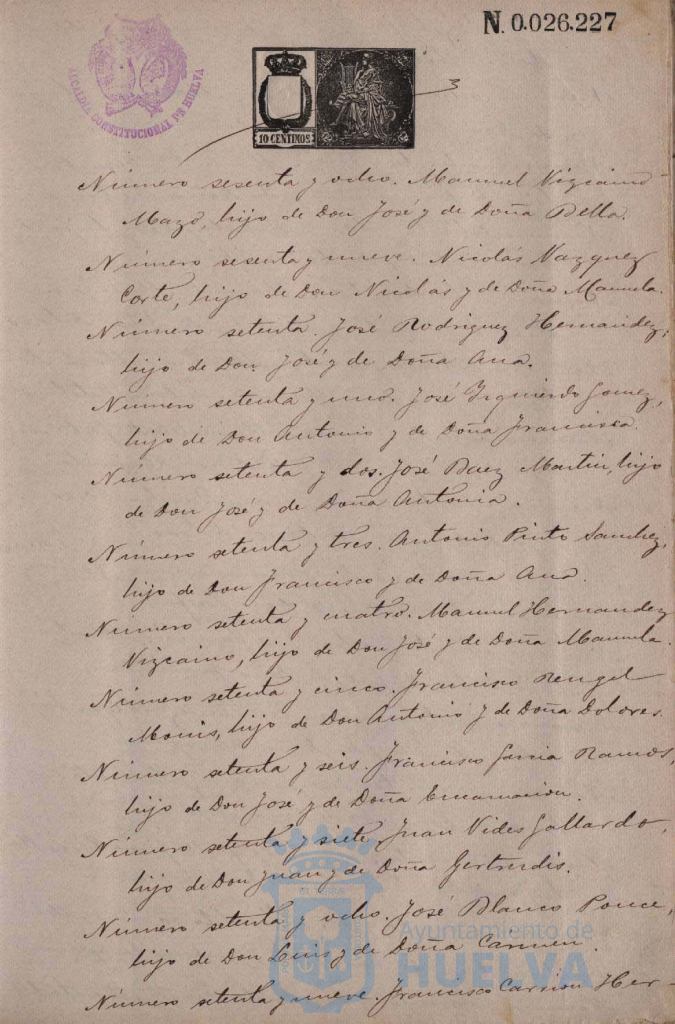 N. 0.026.227
ALCALDIA CONSTITUCIONAL DE HUELVA
10 CENTIMOS
Número sesenta y ocho. Manuel Vizcaino
Mazo, hijo de Don José y de Doña Bella.
Número sesenta y nueve. Nicolás Vazquez
Corte, hijo de Don Nicolás y de Doña Manuela.
Número setenta. José Rodriguez Hernandez,
hijo de Don José y de Doña Ana.
Número setenta y uno. José Izquierdo Gomez,
hijo de Don Antonio y de Doña Francisca.
Número setenta y dos. José Baez Martin, hijo
de Don José y de Doña Antonia.
Número setenta y tres. Antonio Pinto Sanchez,
hijo de Don Francisco y de Doña Ana.
Número setenta y cuatro. Manuel Hernandez
Vizcaino, hijo de Don José y de Doña Manuela.
Número setenta y cinco. Francisco Rengel
Monis, hijo de Don Antonio y de Doña Dolores.
Número setenta y seis. Francisco Garcia Ramos,
hijo de Don José y de Doña Encarnacion.
Número setenta y siete. Juan Vides Gallardo,
hijo de Don Juan y de Doña Gertrudis.
Número setenta y ocho. José Blanco Ponce,
hijo de Don Luis y de Doña Carmen.
Ayuntamiento de
HUELVA
Número setenta y nueve. Francisco Carrion Her-